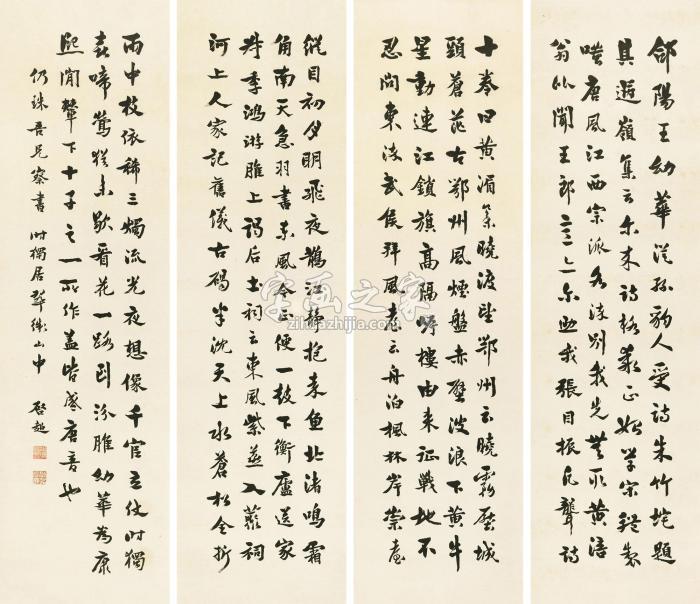 郃陽王幼華從孫豹人受詩朱竹垞題
其過嶺集云尔来詩格乖正始学宋體製
嗤唐風江西宗派各流别我先無取黄涪
翁比聞王郎言亦尔助我張目振凡聾詩
十卷曰黄湄集曉渡望鄂州云曉霧壓城
頭蒼茫古鄂州風煙盤赤壁波浪下黄牛
星動連江鎖旗高隔岍樓由来征戰地不
忍問東流武侯拜風臺云舟泊楓林岸崇臺
縱目初夕明飛夜鵲江静抱来魚北渚鳴霜
角南天急羽書东風今正便一枝下衡廬送家
叔季鴻游睢上謁后土祠云東風紫燕入祠
河上人家記舊儀古碣半沈天上水蒼松全折
雨中枝依稀三燭流光夜想像千官立仗时獨
去啼鶯猶未歇看花一路到汾睢幼華為康
熙間輦下十子之一所作蓋皆盛唐音也
仍洙吾兄察書 时獨居翠微山中 启超
字画之家
zihuazhijia.com